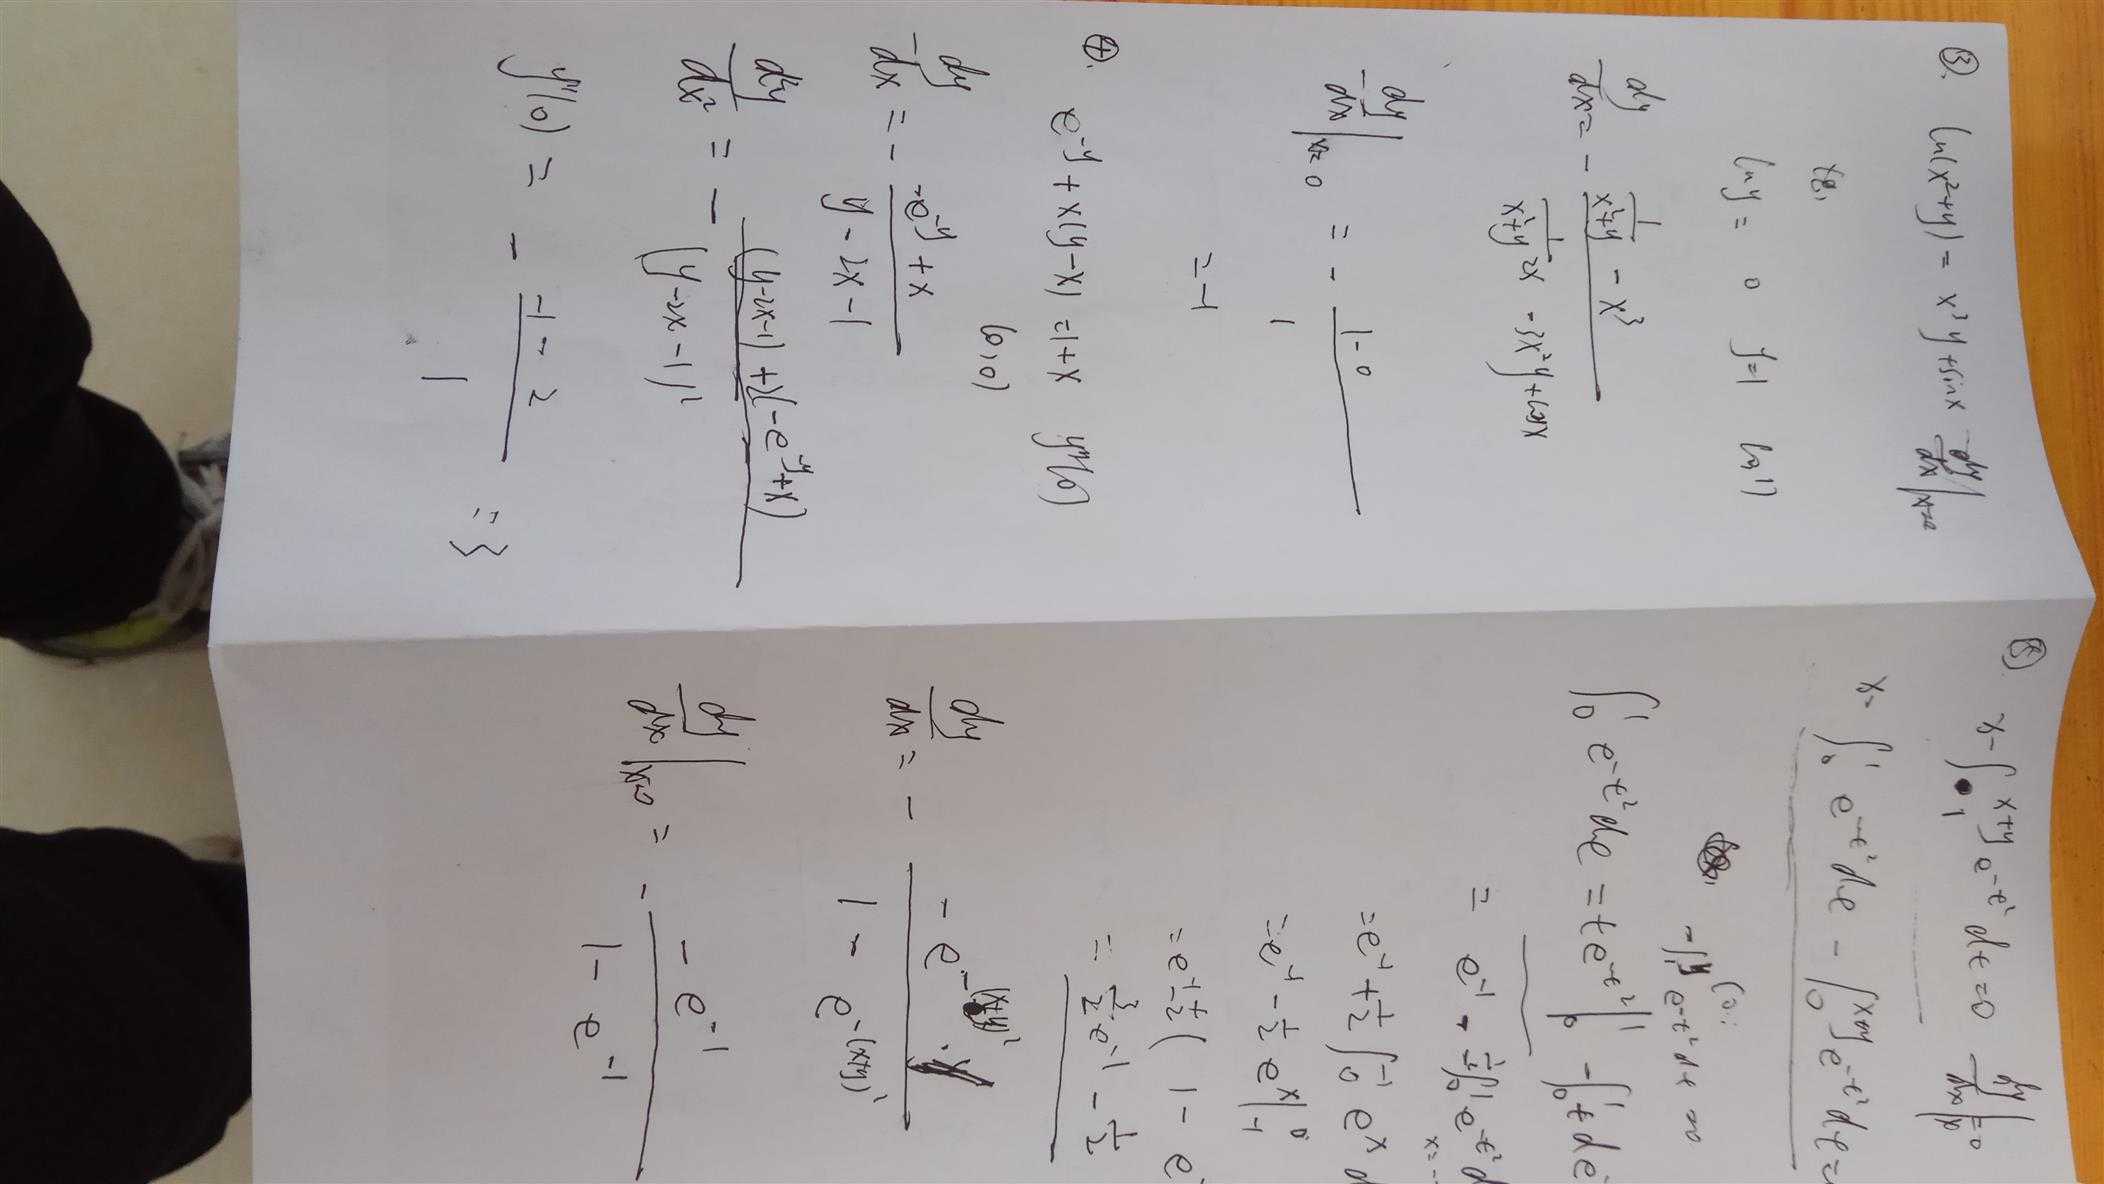 ③. ln(x²+y) = x³y + sinx dy/dx|x=0
lny = 0 y=1 ln1
dy/dx = - (1/(x²+y) - x³)/(1/(x²+y) 2x - 3x²y + cosx)
dy/dx|x=0 = - (1-0)/1
= -1
④. e^-y + x(y-x) = 1+x y''(0)
(0,0)
dy/dx = - (-e^-y + x)/(y - 2x - 1)
d²y/dx² = - ((y-2x-1) + 2(-e^-y + x))/(y-2x-1)²
y''(0) = - (-1 - 2)/1 = 3
⑤. x - ∫₁^(x+y) e^-t² dt = 0 dy/dx|x=0
x - ∫₀¹ e^-t² dt - ∫₀^(x+y) e^-t² dt =
-∫₁^y e^-t² dt = 0
∫₀¹ e^-t² dt = te^-t²|₀¹ - ∫₀¹ t de
= e^-1 - ½∫₀¹ e^-t² d
= e^-1 + ½∫₀^-1 e^x d
= e^-1 - ½ e^x|₋₁⁰
= e^-1 - ½ (1 - e
= 3/2 e^-1 - ½
dy/dx = - (-e^-(x+y)²)/(1 - e^-(x+y)²)
dy/dx|x=0 = - (-e^-1)/(1 - e^-1)